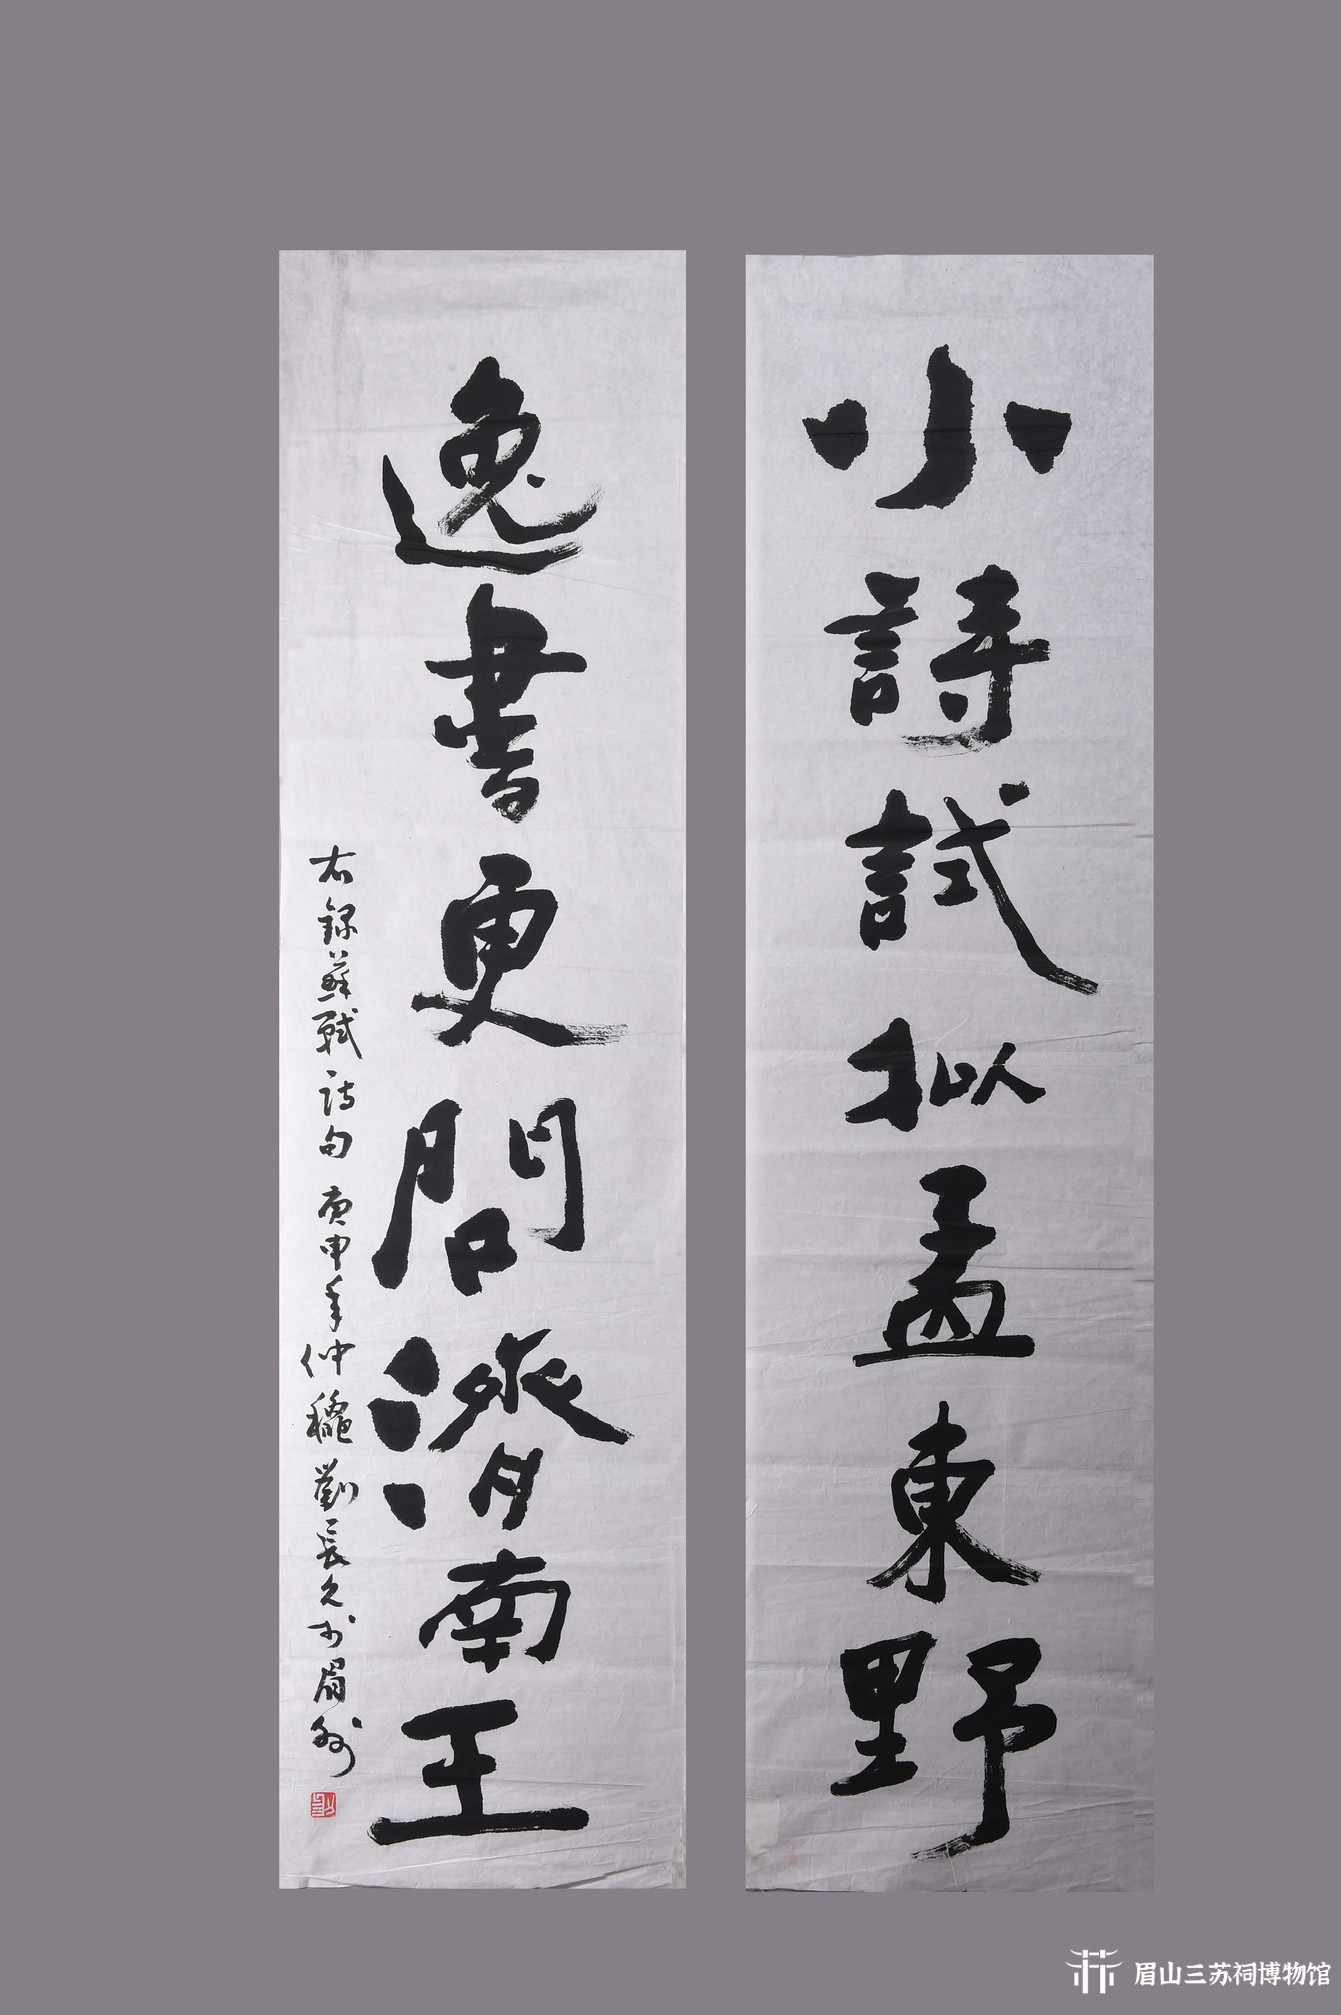 小詩試拟孟東野
逸書更問濟南王
右録蘇軾詩句 庚申年仲龝劉長久於眉州
眉山三苏祠博物馆